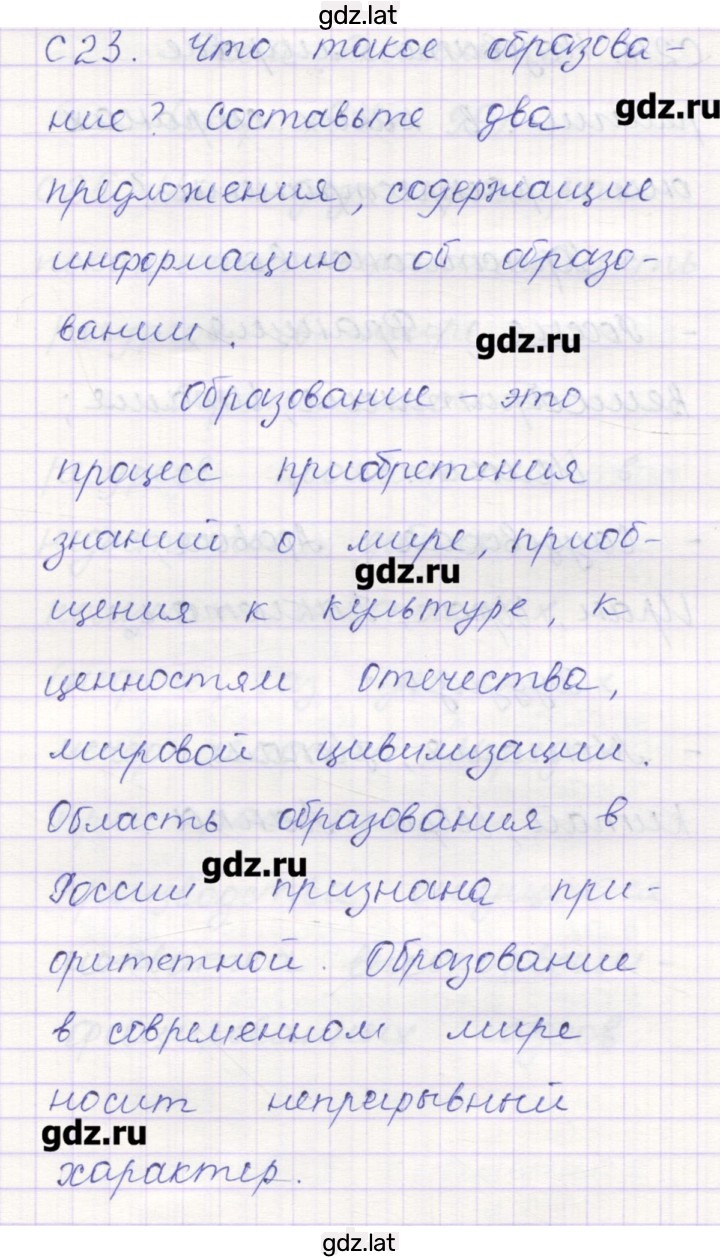 gdz.lat
С23. Что такое образова-
ние? Составьте два
gdz.ru
предложения, содержащие
информацию об образо-
вании.
gdz.ru
Образование - это
процесс приобретения
знаний о мире, приоб-
gdz.ru
щения к культуре, к
ценностям Отечества,
мировой цивилизации.
Область образования в
gdz.ru
России признана при-
оритетной. Образование
в современном мире
носит непрерывный
gdz.ru
характер.
gdz.lat